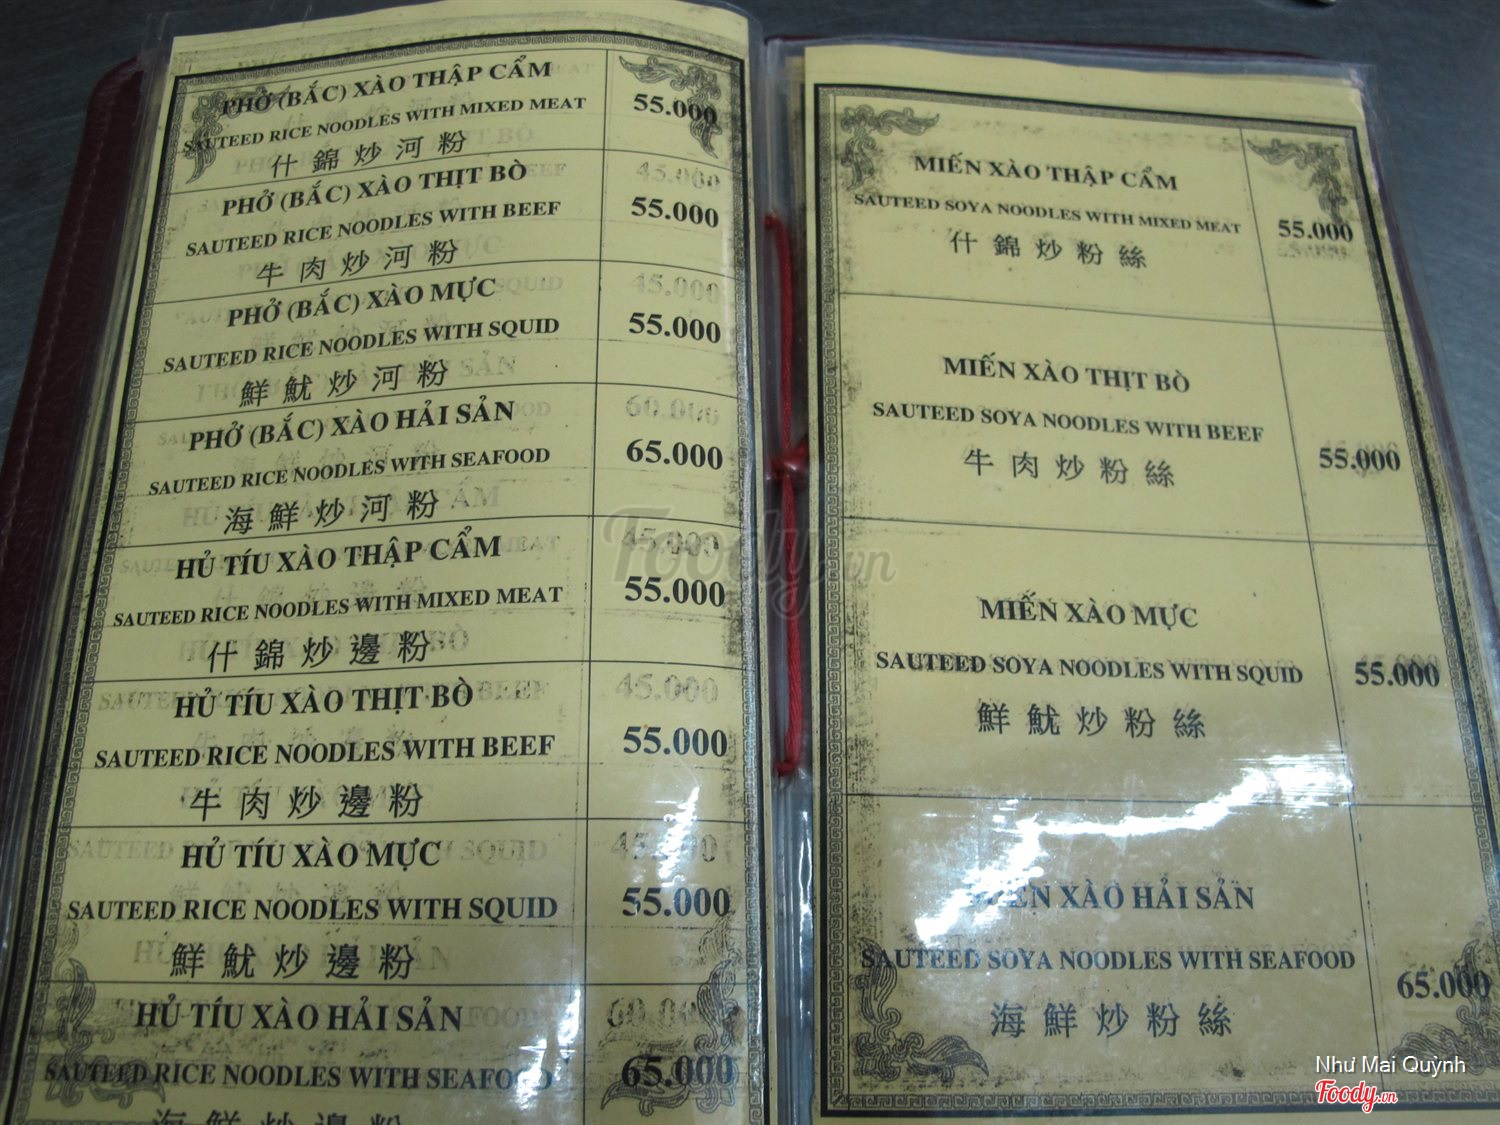 PHỞ (BẮC) XÀO THẬP CẨM
SAUTEED RICE NOODLES WITH MIXED MEAT
什錦炒河粉
55.000
PHỞ (BẮC) XÀO THỊT BÒ
SAUTEED RICE NOODLES WITH BEEF
牛肉炒河粉
55.000
PHỞ (BẮC) XÀO MỰC
SAUTEED RICE NOODLES WITH SQUID
鮮魷炒河粉
55.000
PHỞ (BẮC) XÀO HẢI SẢN
SAUTEED RICE NOODLES WITH SEAFOOD
海鮮炒河粉
65.000
HỦ TÍU XÀO THẬP CẨM
SAUTEED RICE NOODLES WITH MIXED MEAT
什錦炒邊粉
55.000
HỦ TÍU XÀO THỊT BÒ
SAUTEED RICE NOODLES WITH BEEF
牛肉炒邊粉
55.000
HỦ TÍU XÀO MỰC
SAUTEED RICE NOODLES WITH SQUID
鮮魷炒邊粉
55.000
HỦ TÍU XÀO HẢI SẢN
SAUTEED RICE NOODLES WITH SEAFOOD
海鮮炒邊粉
65.000
MIẾN XÀO THẬP CẨM
SAUTEED SOYA NOODLES WITH MIXED MEAT
什錦炒粉絲
55.000
MIẾN XÀO THỊT BÒ
SAUTEED SOYA NOODLES WITH BEEF
牛肉炒粉絲
55.000
MIẾN XÀO MỰC
SAUTEED SOYA NOODLES WITH SQUID
鮮魷炒粉絲
55.000
MIẾN XÀO HẢI SẢN
SAUTEED SOYA NOODLES WITH SEAFOOD
海鮮炒粉絲
65.000
Foody.vn
Như Mai Quỳnh
Foody.vn